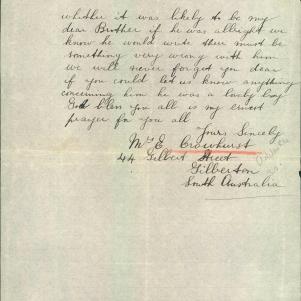 whether it was likely to be my
dear Brother if he was allright we
know he would write there must be
something very wrong with him
we will never forget you dear
if you could let us know anything
concerning him he was a lovely boy
God bless you all is my ernest
prayer for you all
Yours Sincely
Mrs E. Crowhurst
44 Gilbert Street
Gilberton
South Australia